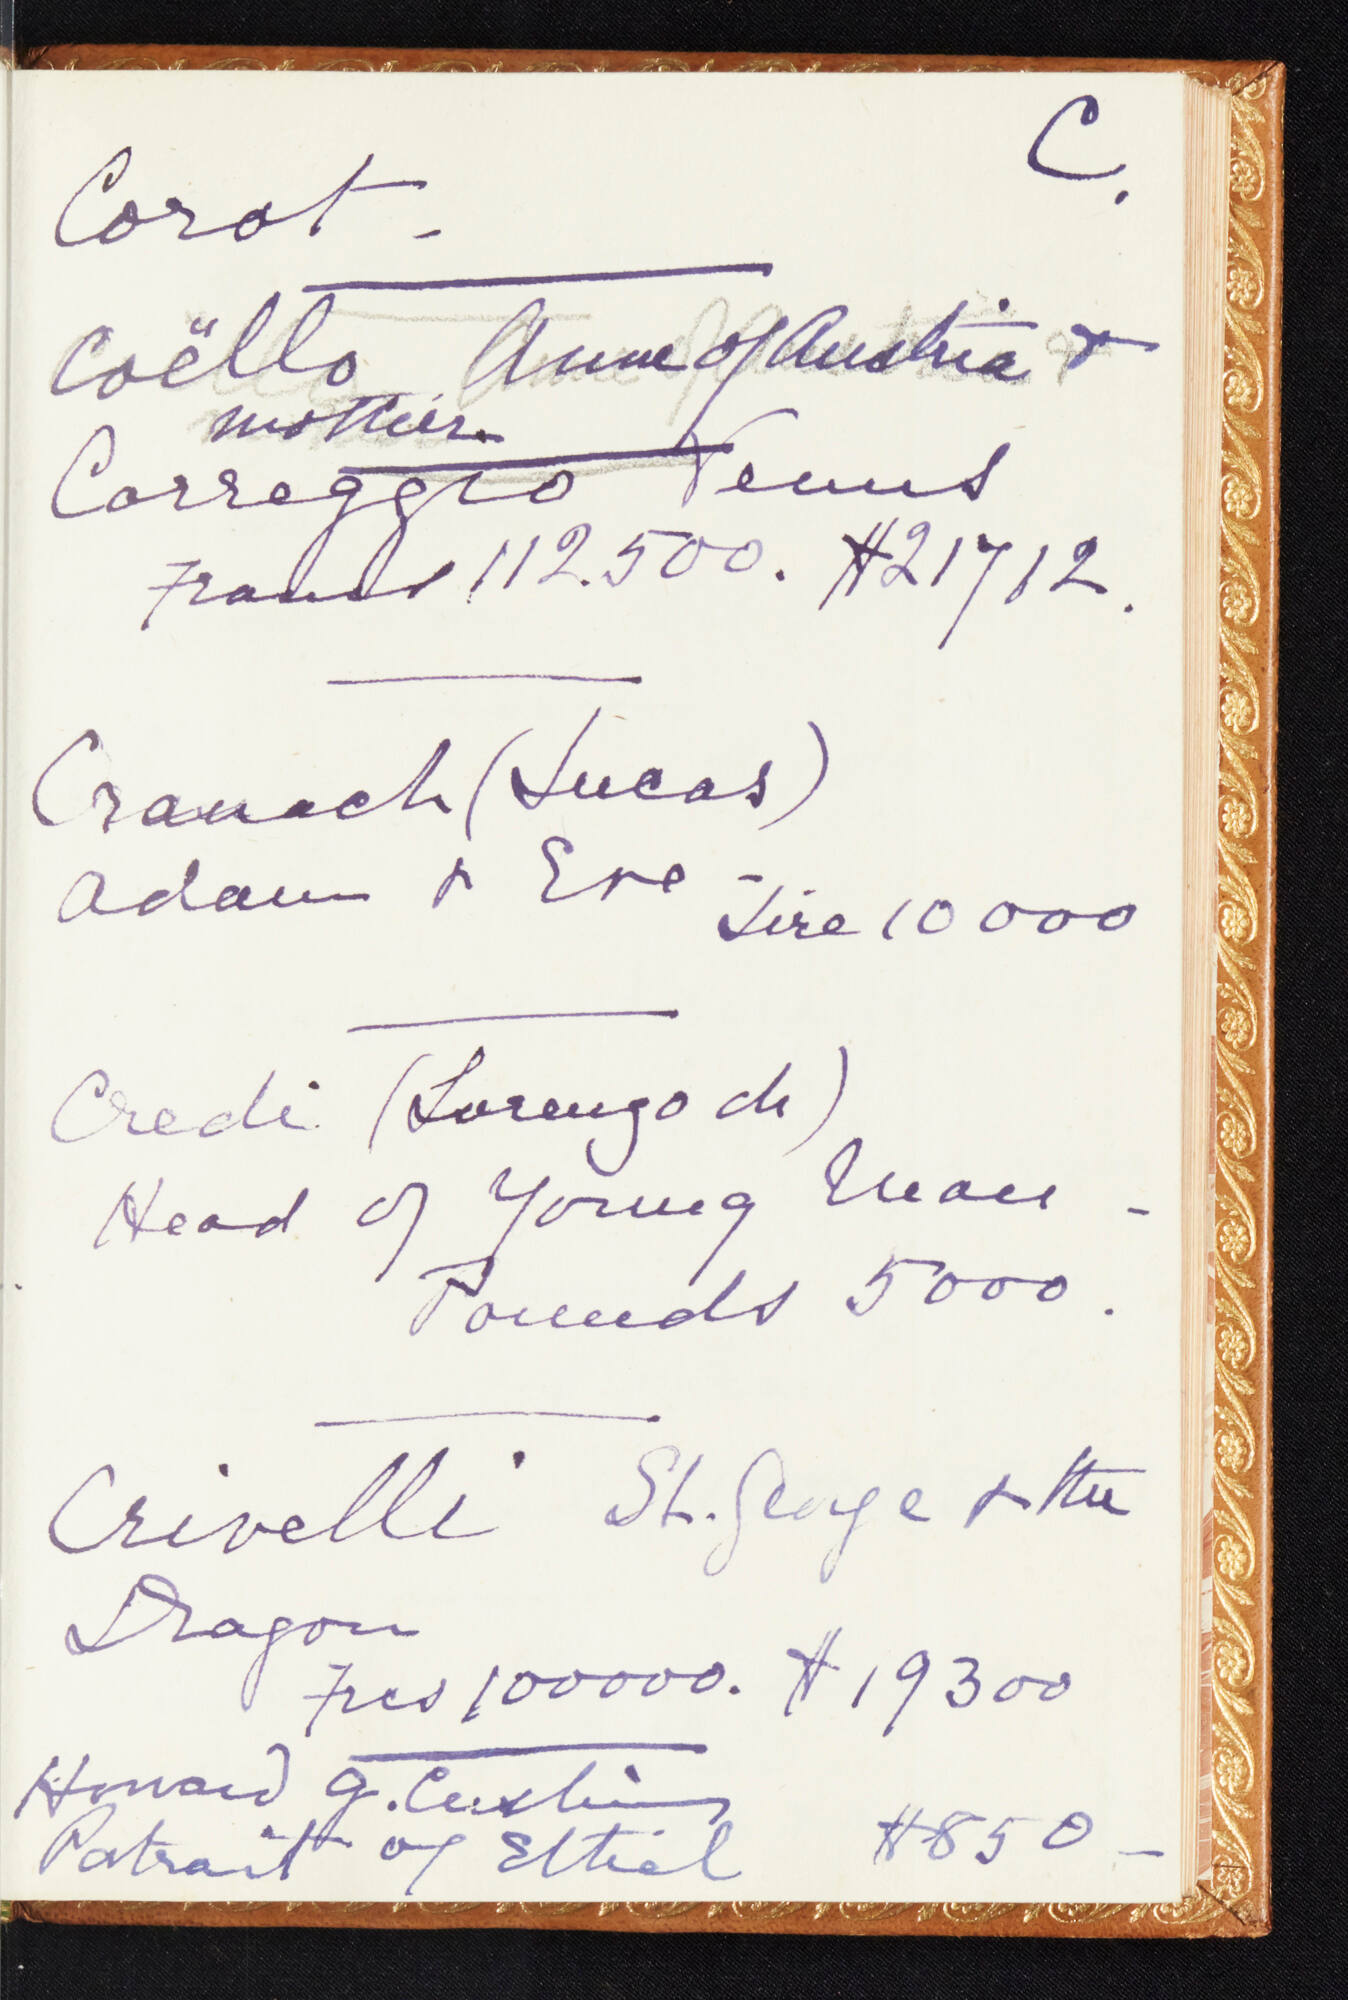 C.
Corot -
Coëllo Anne of Austria &
mother.
Correggio Venus
Francs 112.500. $21712.
Cranach (Lucas)
Adam & Eve -
Lire 10000
Credi (Lorenzo di)
Head of Young Man -
Pounds 5000.
Crivelli St. George & the
Dragon
Frcs 100000. $19300
Howard G. Cushing
Portrait of Ethel $850 -